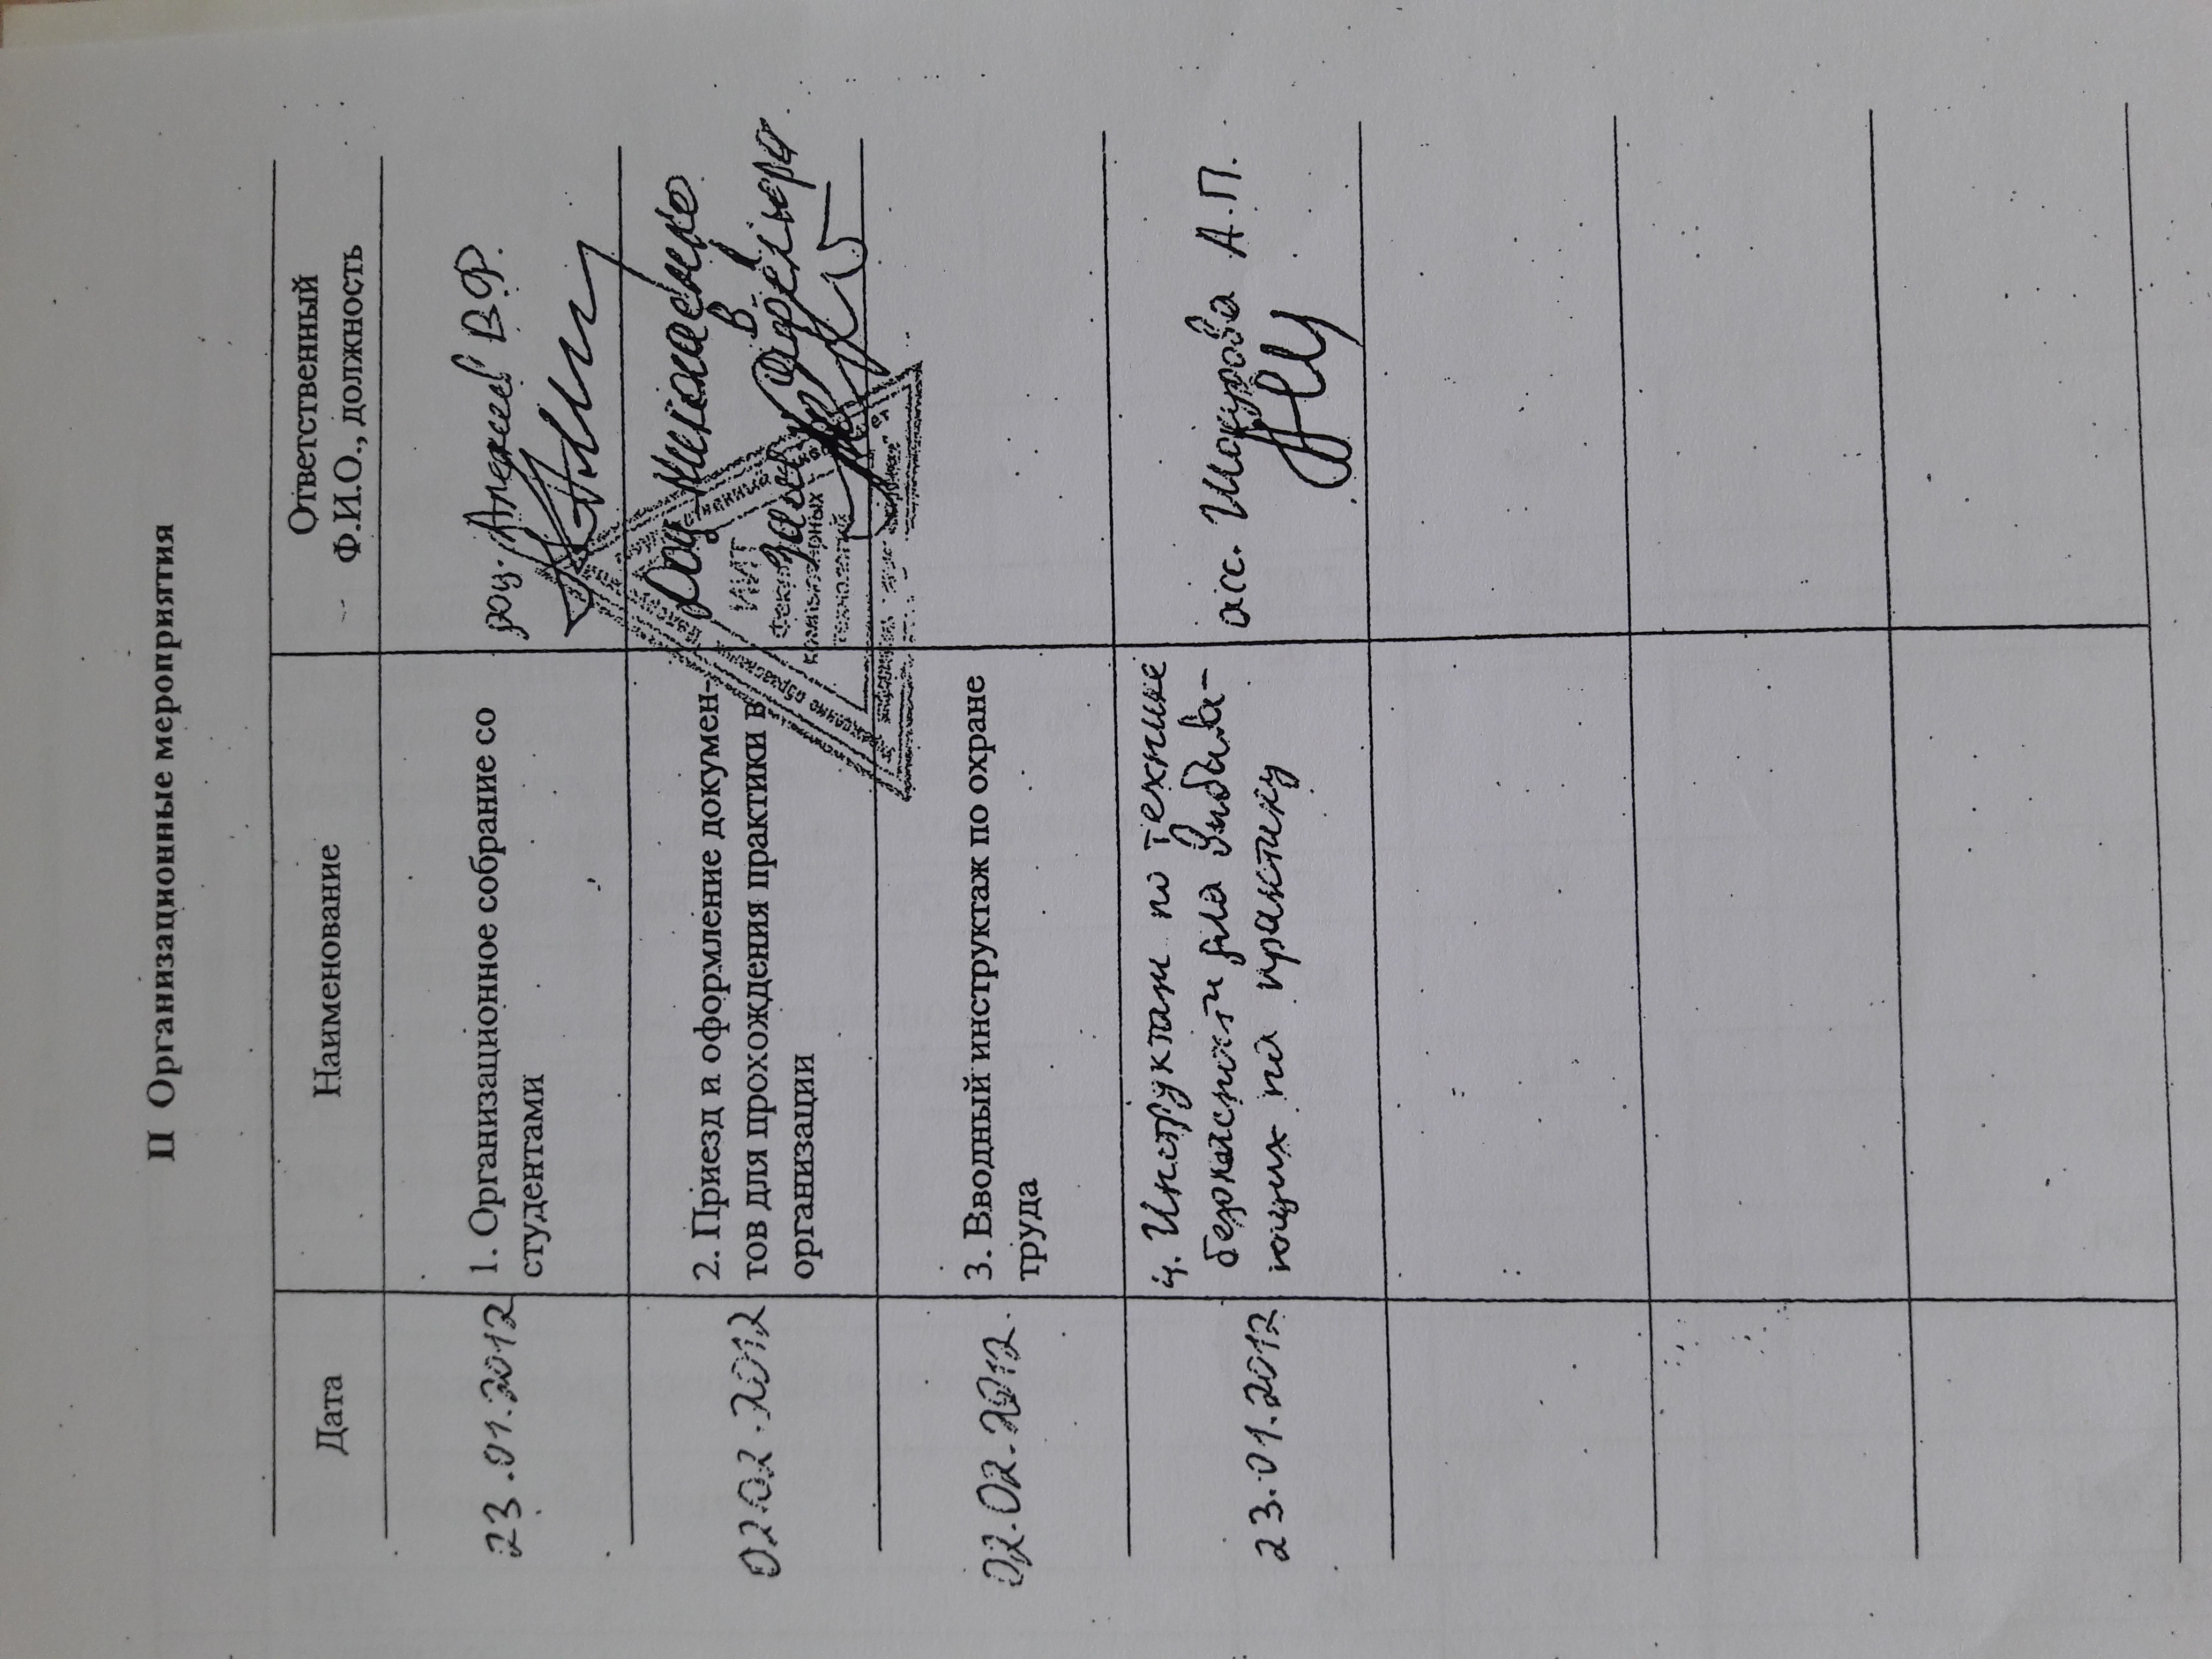 II Организационные мероприятия
Дата
Наименование
Ответственный
Ф.И.О., должность
23.01.2012
1. Организационное собрание со
студентами
доц. Алексеев В.Ф.
02.02.2012
2. Приезд и оформление докумен-
тов для прохождения практики в
организации
Доц. Николаенко
В.Л.
Зам. директора
ИИТ
Факультет
компьютерных
технологий
02.02.2012.
3. Вводный инструктаж по охране
труда
23.01.2012
4. Инструктаж по технике
безопасности для выбыва-
ющих на практику
асс. Шакурова А.П.